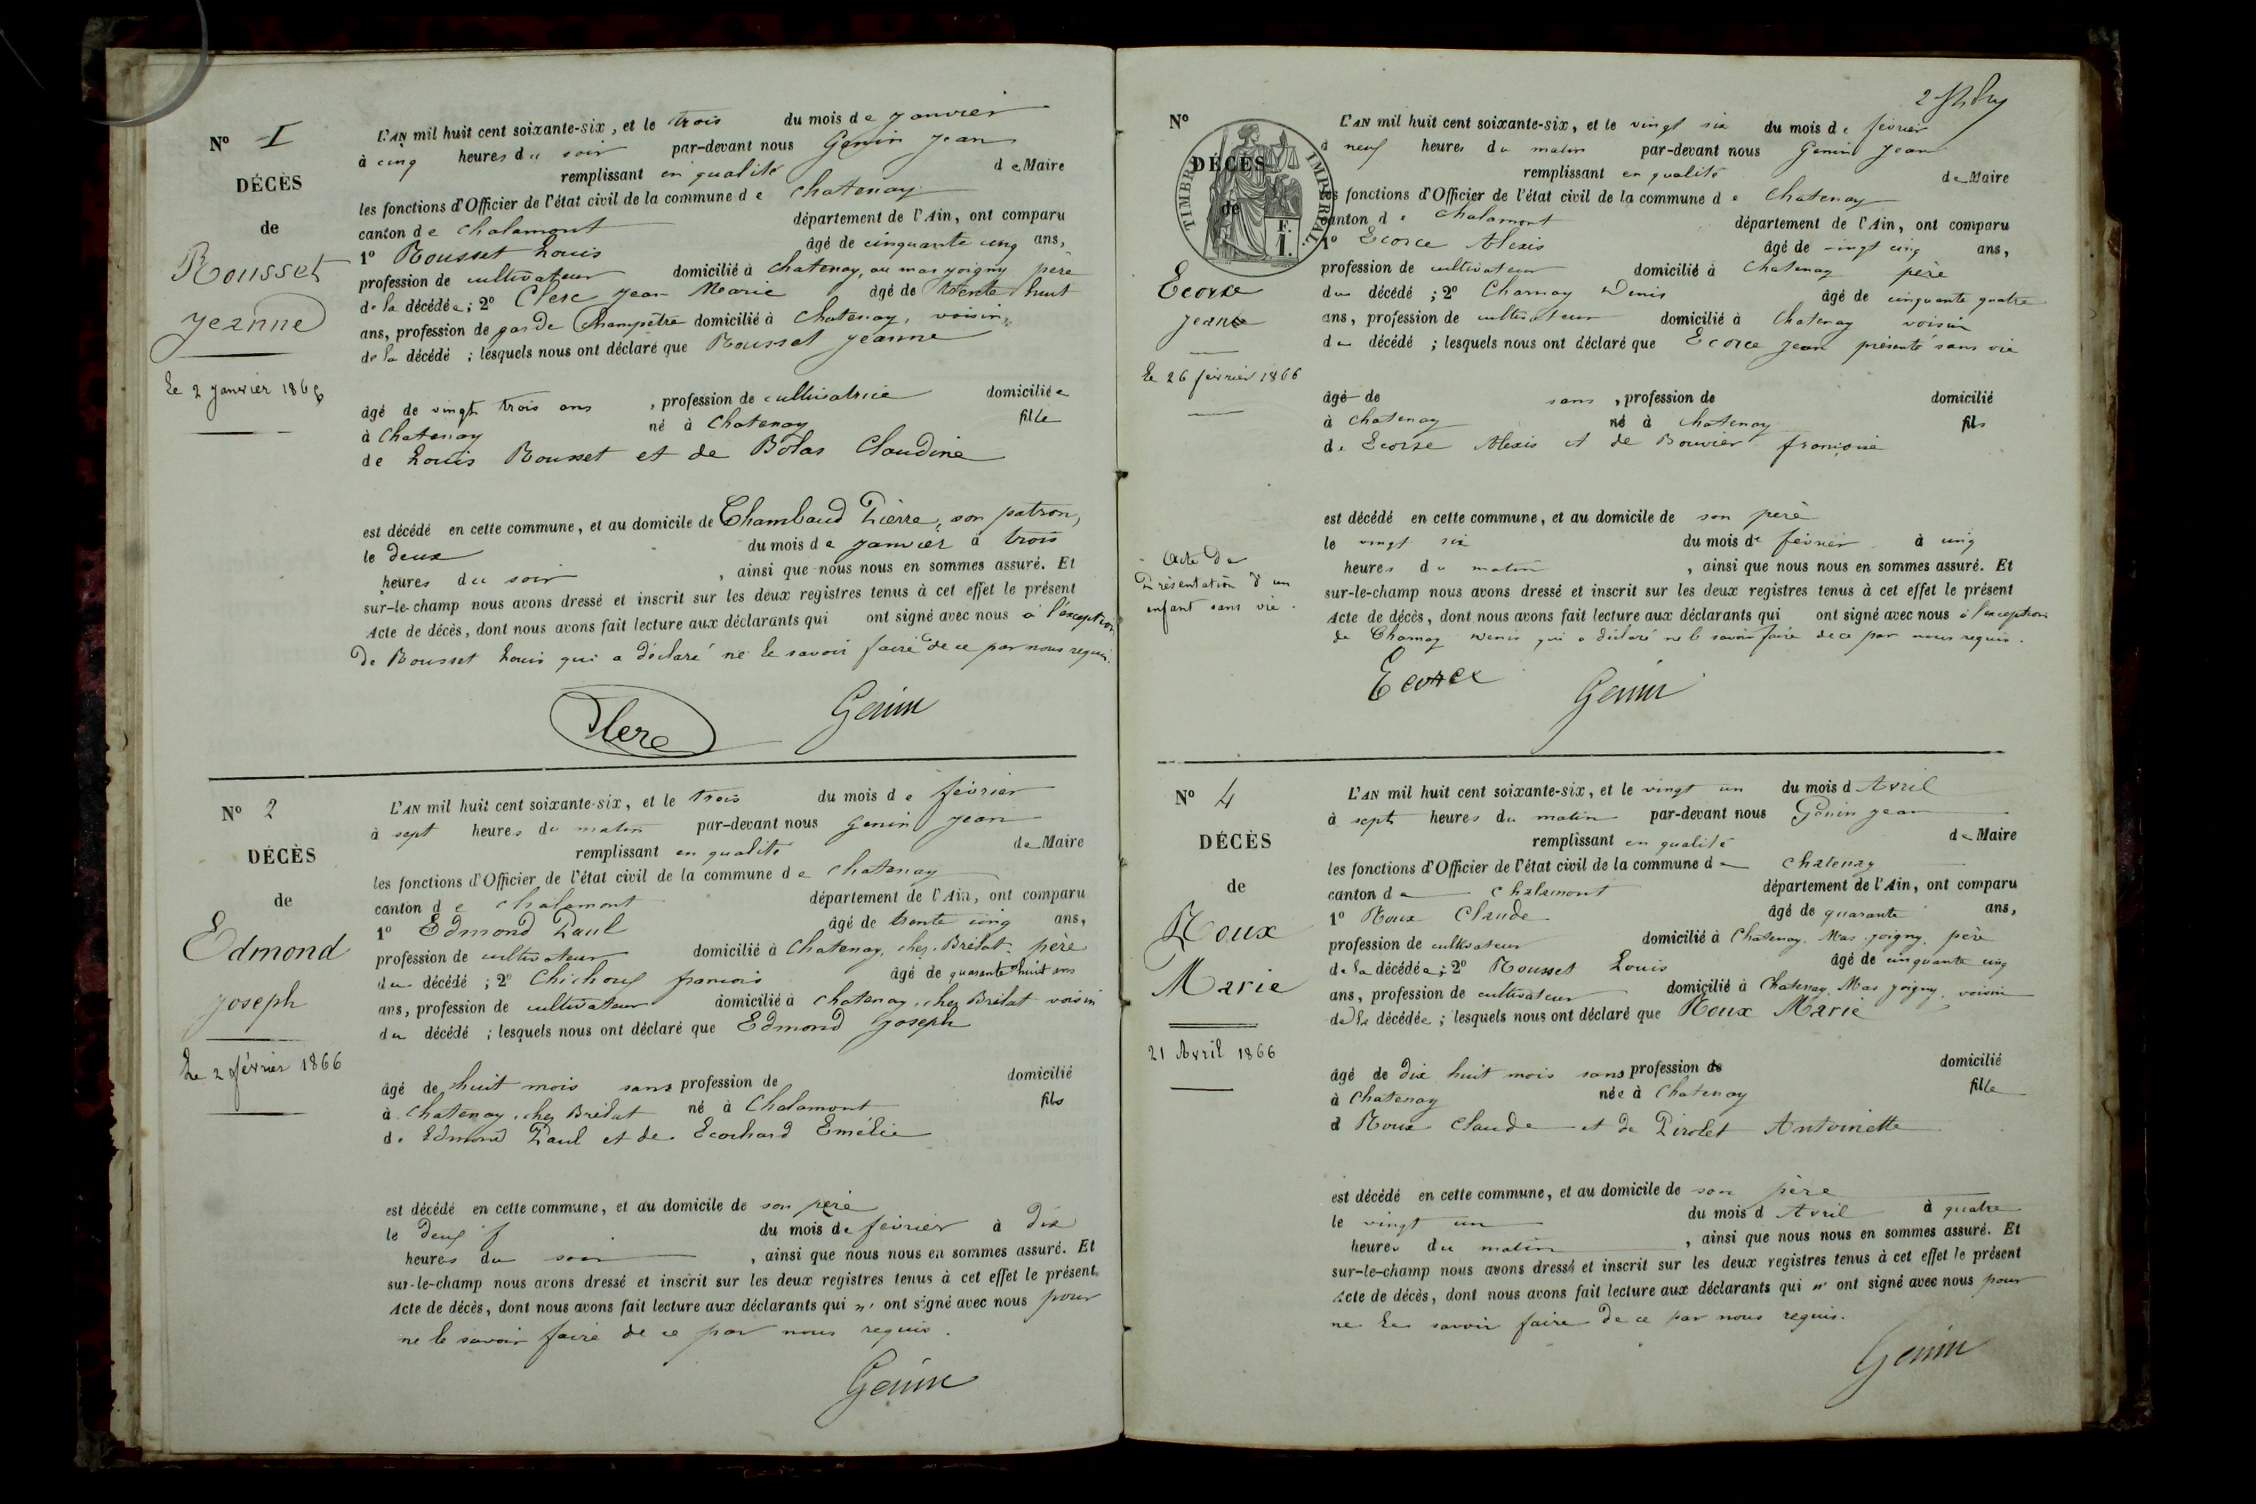 Nº 1
DÉCÈS
de
Rousset
Jeanne
le 2 janvier 1866
L'AN mil huit cent soixante-six, et le trois du mois de janvier
à cinq heures du soir par-devant nous Genin Jean
remplissant en qualité de Maire
les fonctions d'Officier de l'état civil de la commune de Chatenay
canton de Chalamont département de l'Ain, ont comparu
1º Rousset Louis âgé de cinquante cinq ans,
profession de cultivateur domicilié à Chatenay, au mas joigny père
de la décédée; 2º Clerc Jean Marie âgé de trente huit
ans, profession de garde Champêtre domicilié à Chatenay, voisin
de la décédé ; lesquels nous ont déclaré que Rousset Jeanne
âgé de vingt trois ans , profession de cultivatrice domiciliée
à Chatenay né à Chatenay fille
de Louis Rousset et de Bolas Claudine
est décédé en cette commune, et au domicile de Chambaud Pierre, son patron,
le deux du mois de janvier à trois
heures du soir , ainsi que nous nous en sommes assuré. Et
sur-le-champ nous avons dressé et inscrit sur les deux registres tenus à cet effet le présent
Acte de décès, dont nous avons fait lecture aux déclarants qui ont signé avec nous à l'exception
de Rousset Louis qui a déclaré ne le savoir faire de ce par nous requis.
Clerc Genin
Nº 2
DÉCÈS
de
Edmond
joseph
Le 2 février 1866
L'AN mil huit cent soixante-six, et le trois du mois de février
à sept heures du matin par-devant nous Genin Jean
remplissant en qualité de Maire
les fonctions d'Officier de l'état civil de la commune de Chatenay
canton de Chalamont département de l'Ain, ont comparu
1º Edmond Paul âgé de trente cinq ans,
profession de cultivateur domicilié à Chatenay, chez Brélat père
du décédé ; 2º Chichoux francois âgé de quarante huit ans
ans, profession de cultivateur domicilié à Chatenay, chez Brélat voisin
du décédé ; lesquels nous ont déclaré que Edmond Joseph
âgé de huit mois sans profession de domicilié
à Chatenay, chez Brélat né à Chalamont fils
de Edmond Paul et de Ecochard Emélie
est décédé en cette commune, et au domicile de son père
le deux du mois de février à dix
heures du soir , ainsi que nous nous en sommes assuré. Et
sur-le-champ nous avons dressé et inscrit sur les deux registres tenus à cet effet le présent
Acte de décès, dont nous avons fait lecture aux déclarants qui n' ont signé avec nous pour
ne le savoir faire de ce par nous requis.
Genin
Nº
DÉCÈS
de
TIMBRE IMPERIAL
F.
1.
Ecorse
Jean
le 26 février 1866
Acte de
Présentation d'un
enfant sans vie.
L'AN mil huit cent soixante-six, et le vingt six du mois de février
à neuf heures du matin par-devant nous Genin Jean
remplissant en qualité de Maire
les fonctions d'Officier de l'état civil de la commune de Chatenay
canton de Chalamont département de l'Ain, ont comparu
1º Ecorce Alexis âgé de vingt cinq ans,
profession de cultivateur domicilié à Chatenay père
du décédé ; 2º Charnay Denis âgé de cinquante quatre
ans, profession de cultivateur domicilié à Chatenay voisin
du décédé ; lesquels nous ont déclaré que Ecorce Jean présenté sans vie
âgé de sans , profession de domicilié
à Chatenay né à Chatenay fils
de Ecorse Alexis et de Bouvier françoise
est décédé en cette commune, et au domicile de son père
le vingt six du mois de février à cinq
heures du matin , ainsi que nous nous en sommes assuré. Et
sur-le-champ nous avons dressé et inscrit sur les deux registres tenus à cet effet le présent
Acte de décès, dont nous avons fait lecture aux déclarants qui ont signé avec nous à l'exception
de Charnay Denis qui a déclaré ne le savoir faire de ce par nous requis.
Genin
Nº 4
DÉCÈS
de
Roux
Marie
21 Avril 1866
L'AN mil huit cent soixante-six, et le vingt un du mois d Avril
à sept heures du matin par-devant nous Genin Jean
remplissant en qualité de Maire
les fonctions d'Officier de l'état civil de la commune de Chatenay
canton de Chalamont département de l'Ain, ont comparu
1º Roux Claude âgé de quarante ans,
profession de cultivateur domicilié à Chatenay. Mas joigny, père
de la décédée; 2º Rousset Louis âgé de cinquante cinq
ans, profession de cultivateur domicilié à Chatenay, Mas joigny, voisin
de la décédée ; lesquels nous ont déclaré que Roux Marie
âgé de dix huit mois sans profession de domicilié
à Chatenay née à Chatenay fille
d Roux Claude et de Pirolet Antoinette
est décédé en cette commune, et au domicile de son père
le vingt un du mois d Avril à quatre
heures du matin , ainsi que nous nous en sommes assuré. Et
sur-le-champ nous avons dressé et inscrit sur les deux registres tenus à cet effet le présent
Acte de décès, dont nous avons fait lecture aux déclarants qui n' ont signé avec nous pour
ne les savoir faire de ce par nous requis.
Genin